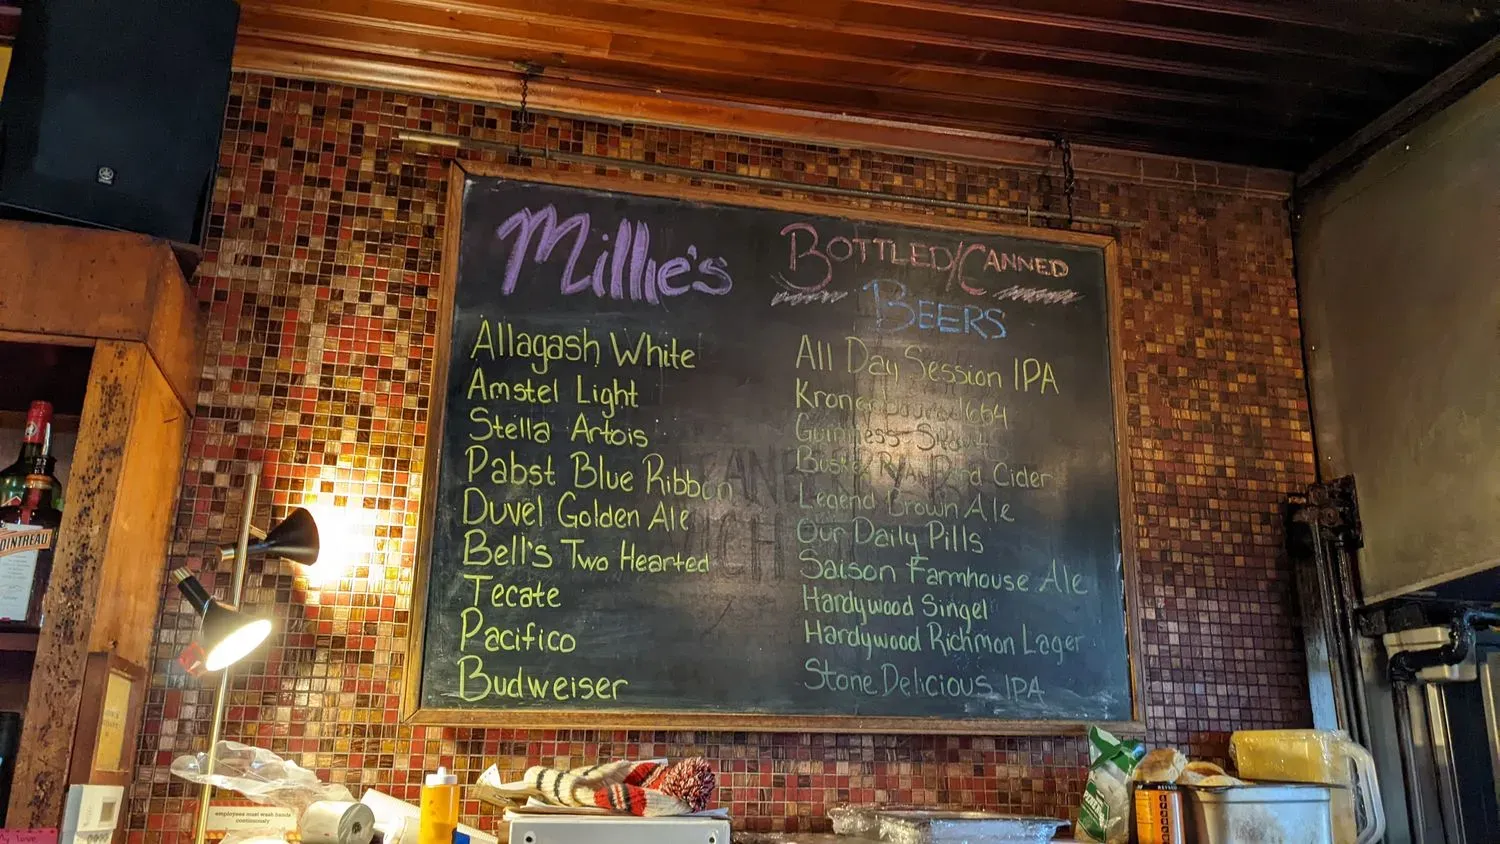 Millie's
Allagash White
Amstel Light
Stella Artois
Pabst Blue Ribbon
Duvel Golden Ale
Bell's Two Hearted
Tecate
Pacifico
Budweiser
BOTTLED/CANNED
BEERS
All Day Session IPA
Kronenbourg 1664
Guinness
Bold Cider
Legend Brown Ale
Our Daily Pills
Saison Farmhouse Ale
Hardywood Singel
Hardywood Richmon Lager
Stone Delicious IPA
OINTREAU
employees must wash hands
continuously